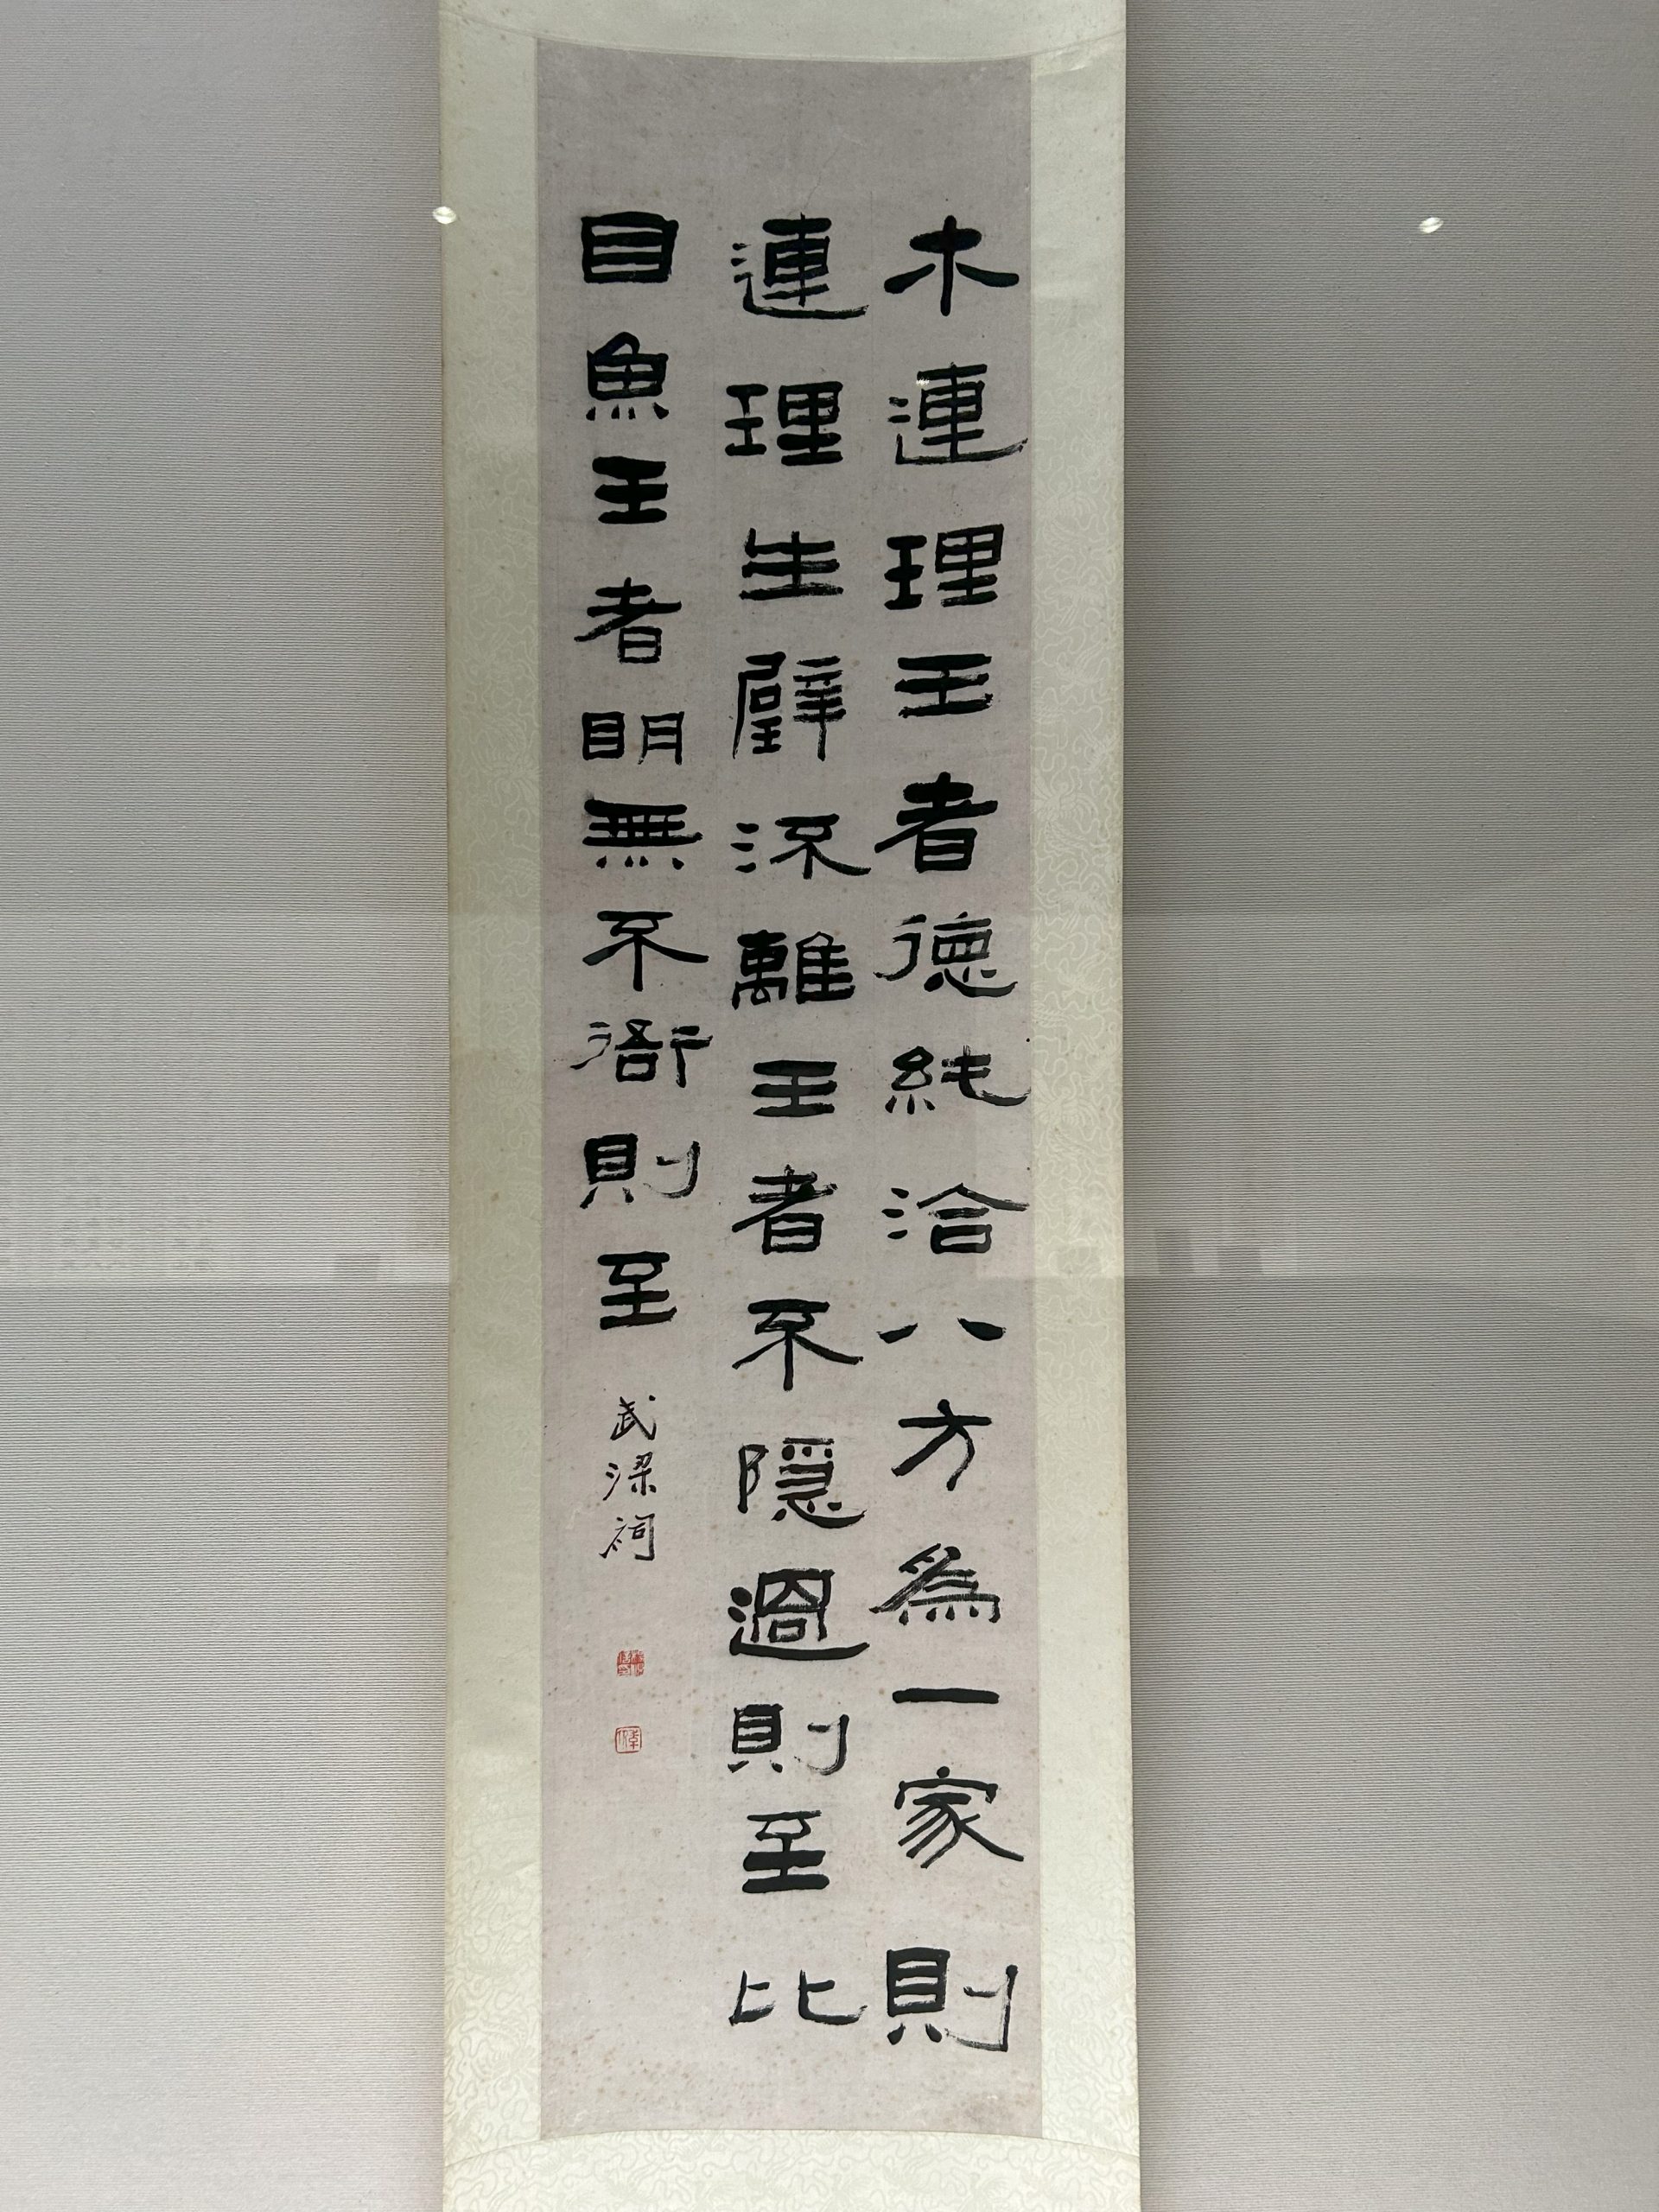 木連理王者德純洽八方為一家則
連理生璧㳅離王者不隱過則至比
目魚王者眀無不衙則至
武梁祠